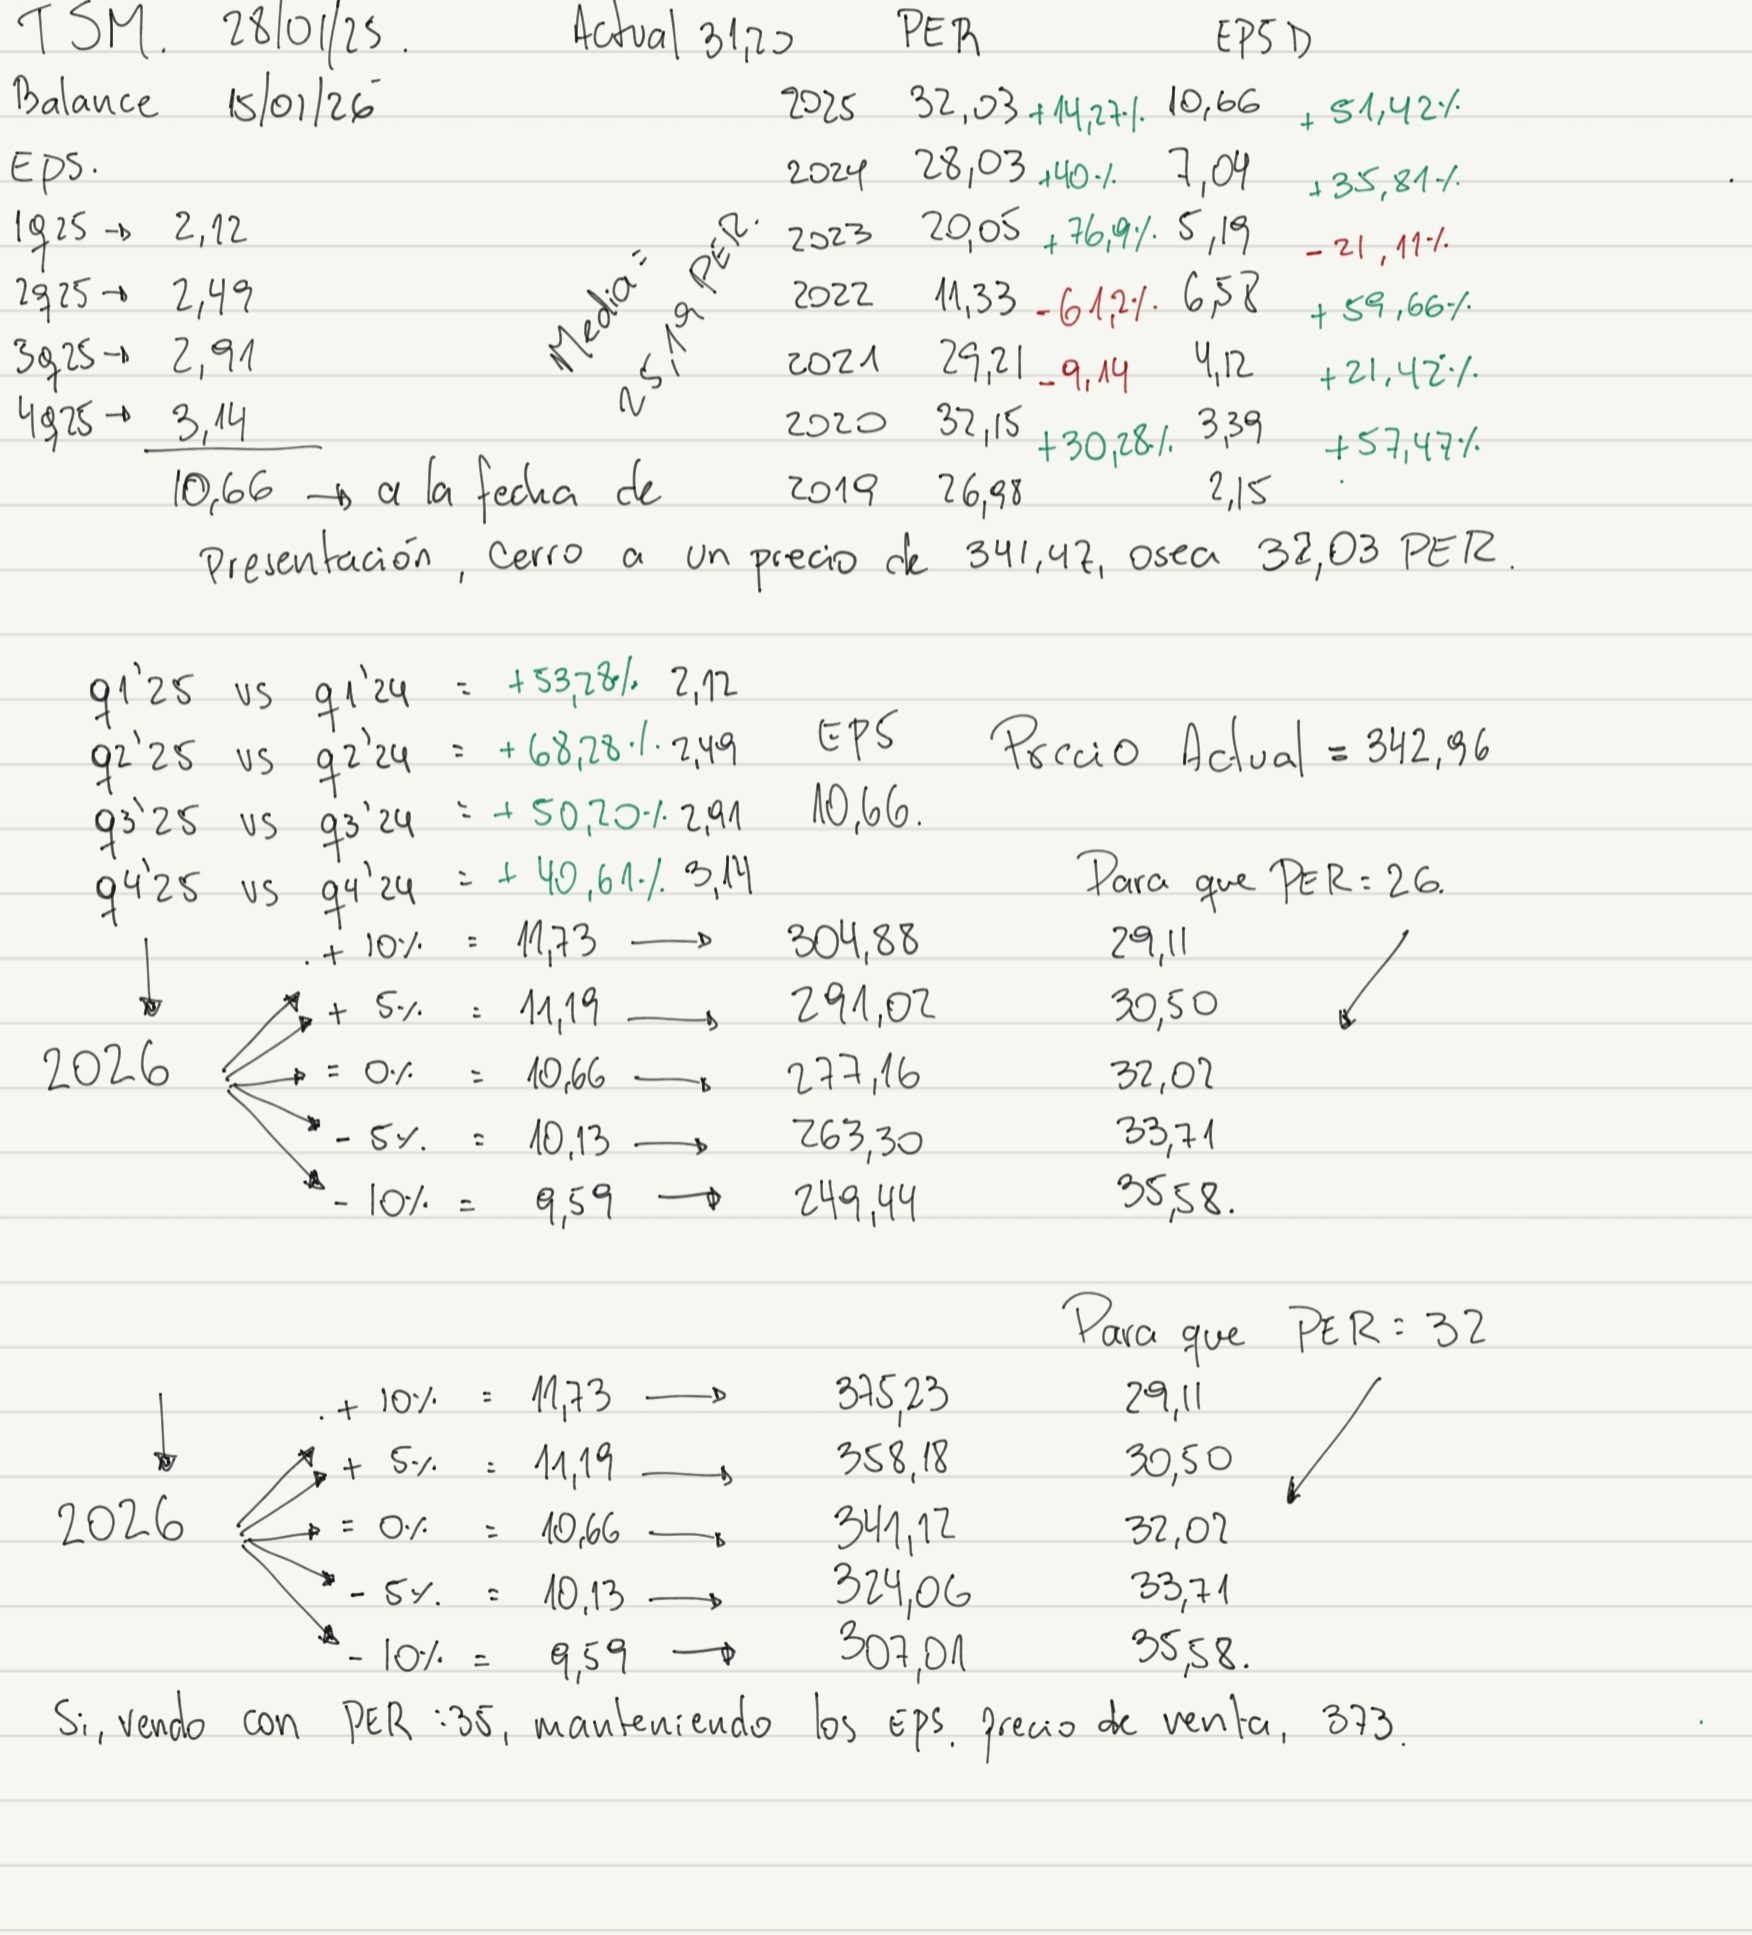 TSM. 28/01/25. Actual 31,20 PER EPS D
Balance 15/01/26 2025 32,03 +14,27% 10,66 +51,42%
EPS. 2024 28,03 +40% 7,04 +35,81%
1q25 → 2,12 2023 20,05 +76,9% 5,19 -21,11%
2q25 → 2,49 2022 11,33 -61,2% 6,58 +59,66%
3q25 → 2,91 2021 29,21 -9,14 4,12 +21,42%
4q25 → 3,14 2020 32,15 +30,28% 3,39 +57,47%
Media =
25,19 PER.
10,66 → a la fecha de 2019 26,98 2,15
Presentación, cerro a un precio de 341,47, osea 32,03 PER.
q1'25 vs q1'24 = +53,28% 2,12
q2'25 vs q2'24 = +68,28%. 2,49 EPS Precio Actual = 342,96
q3'25 vs q3'24 = +50,20% 2,91 10,66.
q4'25 vs q4'24 = +40,61% 3,14 Para que PER = 26.
+ 10% = 11,73 → 304,88 29,11
+ 5% = 11,19 → 291,02 30,50
2026 = 0% = 10,66 → 277,16 32,02
- 5% = 10,13 → 263,30 33,71
- 10% = 9,59 → 249,44 35,58.
Para que PER = 32
+ 10% = 11,73 → 375,23 29,11
+ 5% = 11,19 → 358,18 30,50
2026 = 0% = 10,66 → 341,12 32,02
- 5% = 10,13 → 324,06 33,71
- 10% = 9,59 → 307,01 35,58.
Si, vendo con PER :35, manteniendo los EPS. precio de venta, 373.